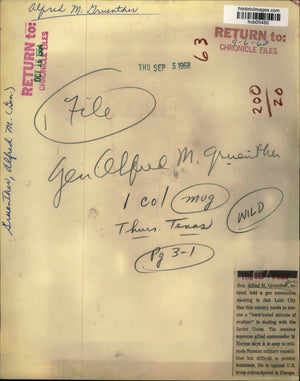 Alfred M. Gruenther
historicimages.com
hcb05480
RETURN to:
OCT 15 1964
CHRONICLE FILES
RETURN to:
9-6-67
CHRONICLE FILES
THU SEP 5 1968
63
200
20
File
Gruenther, Alfred M. (Gen)
Gen Alfred M. Gruenther
1 col mug
WILD
Thurs Texas
Pg 3-1
THU SEP 5 1968
Gen. Alfred M. Gruenther, re-
tired, told a gas association
meeting in Salt Lake City
that this country needs to pur-
sue a "hard-boiled attitude of
realism" in dealing with the
Soviet Union. The onetime
supreme allied commander in
Europe says it is easy to esti-
mate Russian military capabili-
ties but difficult to predict
intentions. He is against U.S.
troop redeployment in Europe.